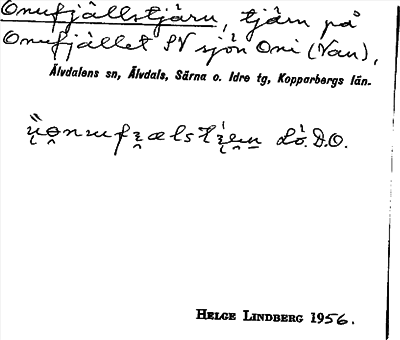 Onufjällstjärn, tjärn på
Onufjället SV sjön Oni (Van),
Älvdalens sn, Älvdals, Särna o. Idre tg, Kopparbergs län.
Lö. D.O.
HELGE LINDBERG 1956.